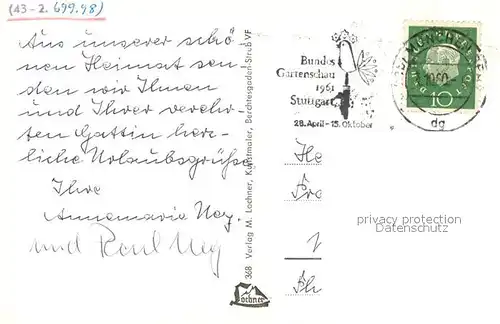 (43-2. 699.98)
Aus unserer schö-
nen Heimat sen-
den wir Ihnen
und Ihrer verehr-
ten Gattin herz-
liche Urlaubsgrüße
Ihre
Annemarie
und
368 Verlag M. Lochner, Kunstmaler, Berchtesgaden-Strub VF
Lochner
Bundes
Gartenschau
1961
Stuttgart
28. April - 15. Oktober
MÜNCHEN
10
dg
He
privacy protection
Datenschutz